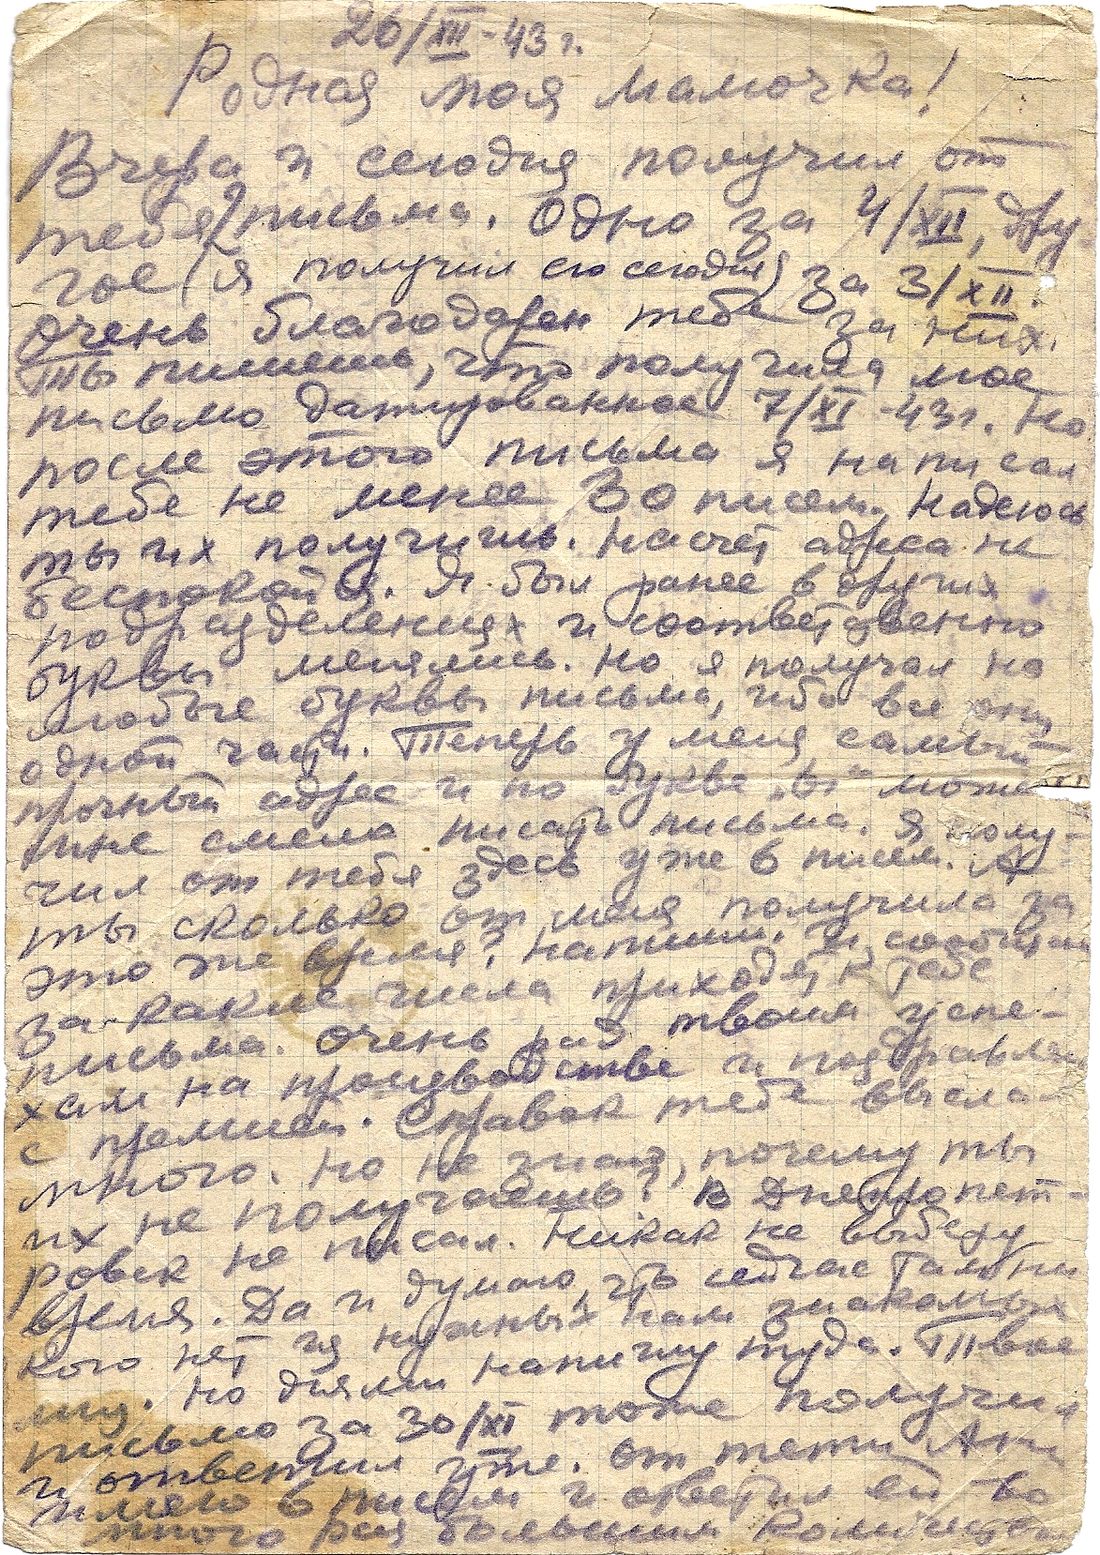 26/XII-43 г.
Родная моя мамочка!
Вчера и сегодня получил от
тебя 2 письма. Одно за 4/XII, дру
гое (я получил его сегодня) за 3/XII.
Очень благодарен тебе за них.
Ты пишешь, что получила мое
письмо датированное 7/XI-43 г. Но
после этого письма я написал
тебе не менее 30 писем. Надеюсь
ты их получишь. Насчет адреса не
беспокойся. Я был ранее в других
подразделениях и соответственно
буквы менялись. Но я получал на
любые буквы письма, ибо все они
одной части. Теперь у меня самый
прочный адрес и по букве „В“ може
мне смело писать письма. Я полу-
чил от тебя здесь уже 6 писем. А
ты сколько от меня получила за
это же время? Напиши. И сообщай
за какие числа приходят к тебе
письма. Очень рад твоим успе-
хам на производстве и поздравляю
с премией. Справок тебе выслал
много. Но не знаю, почему ты
их не получаешь? В Днепропет-
ровск не писал. Никак не выберу
время. Да и думаю, что сейчас там ни
кого нет из нужных нам знакомых
лиц. Но днями напишу туда. Твое
письмо за 30/XI тоже получил
и ответил уже. От тети Ани
имею 6 писем и ответил ей во
много раз большим количеством